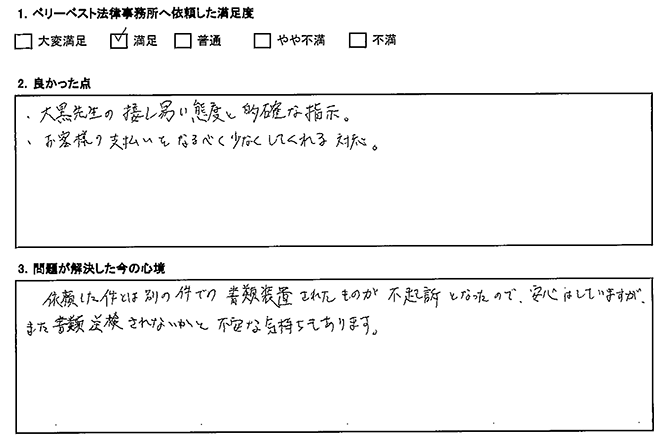 1. ベリーベスト法律事務所へ依頼した満足度
□ 大変満足 ☑ 満足 □ 普通 □ やや不満 □ 不満
2. 良かった点
・大黒先生の接し易い態度と的確な指示。
・お客様の支払いをなるべく少なくしてくれる対応。
3. 問題が解決した今の心境
依頼した件とは別の件での書類装置されたものが不起訴となったので、安心はしていますが、
また書類送検されないかと不安な気持ちもあります。